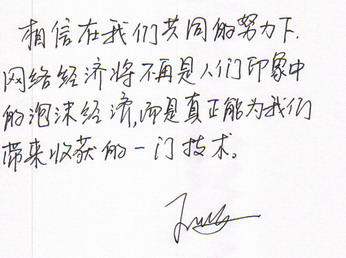 相信在我们共同的努力下.
网络经济将不再是人们印象中
的泡沫经济,而是真正能为我们
带来收获的一门技术。